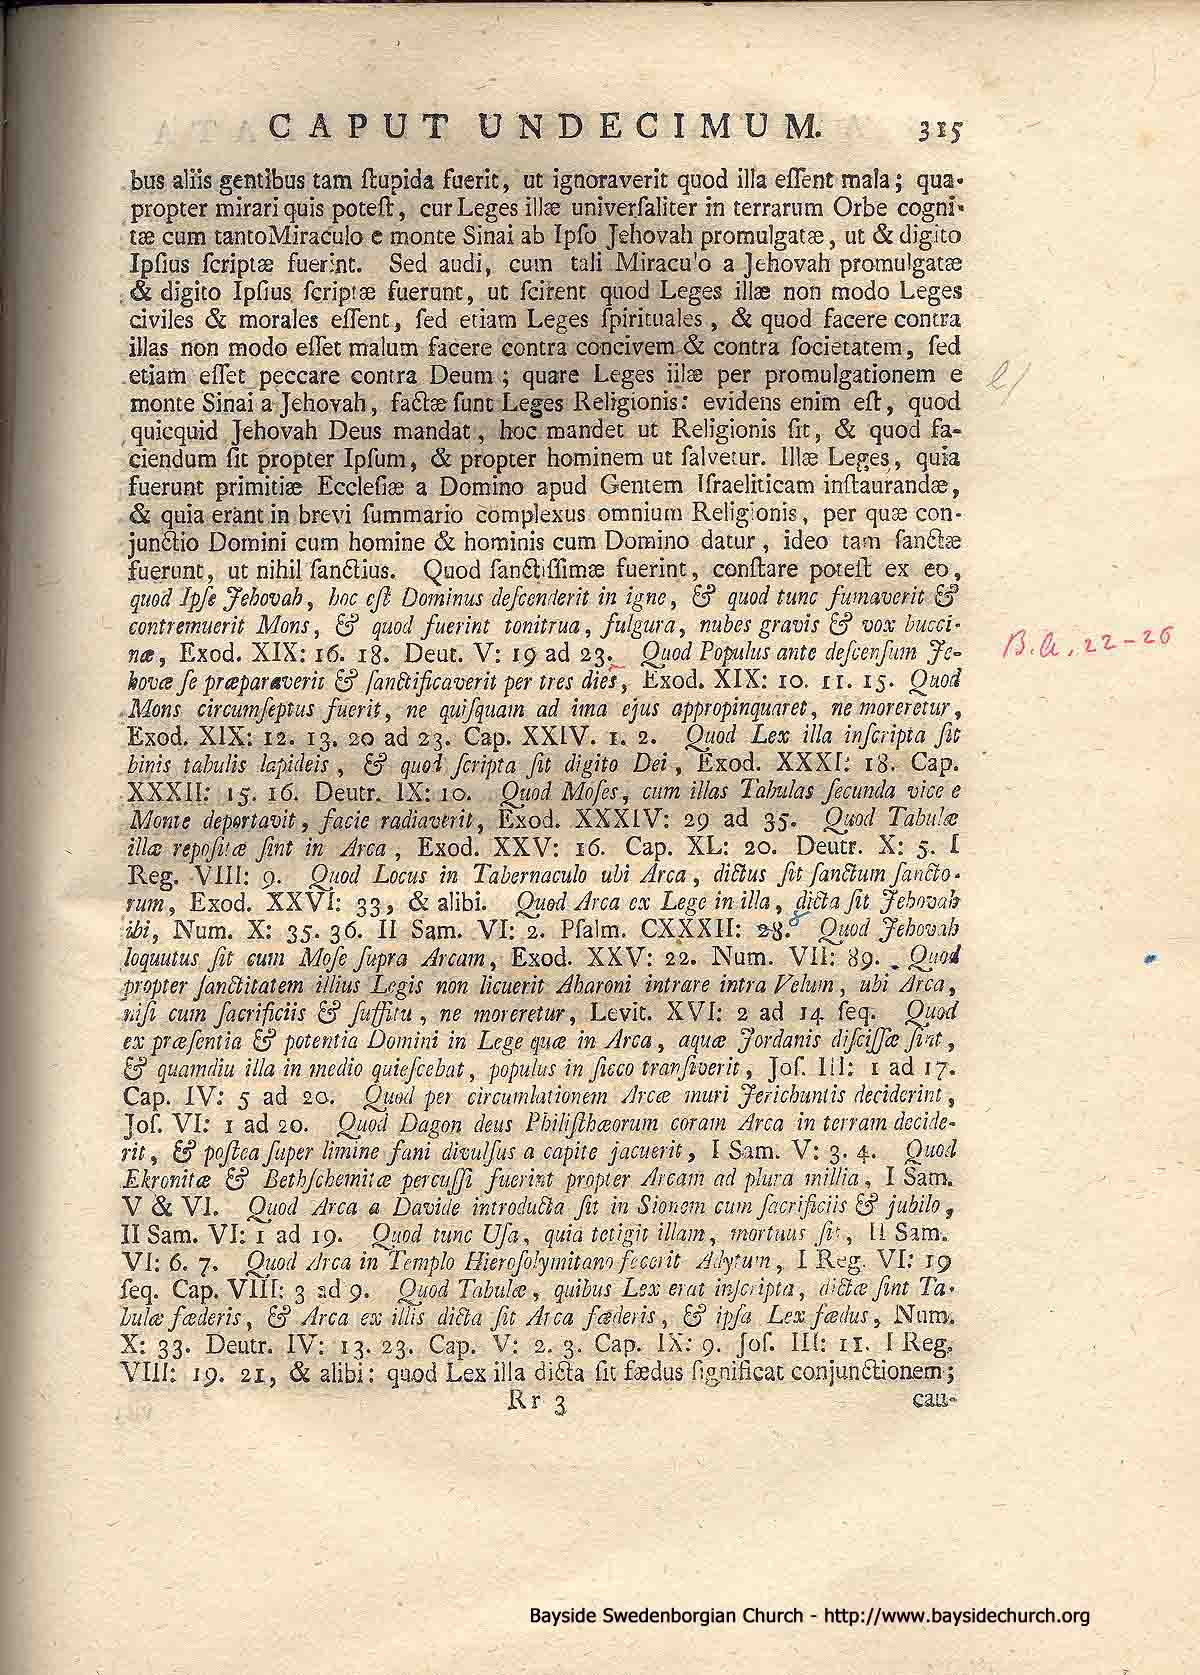 CAPUT UNDECIMUM. 315
bus aliis gentibus tam ſtupida fuerit, ut ignoraverit quod illa eſſent mala; qua-
propter mirari quis poteſt, cur Leges illæ univerſaliter in terrarum Orbe cogni-
tæ cum tanto Miraculo e monte Sinai ab Ipſo Jehovah promulgatæ, ut & digito
Ipſius ſcriptæ fuerint. Sed audi, cum tali Miracu'o a Jehovah promulgatæ
& digito Ipſius ſcriptæ fuerunt, ut ſcirent quod Leges illæ non modo Leges
civiles & morales eſſent, ſed etiam Leges ſpirituales, & quod facere contra
illas non modo eſſet malum facere contra concivem & contra ſocietatem, ſed
etiam eſſet peccare contra Deum; quare Leges iilæ per promulgationem e
monte Sinai a Jehovah, factæ ſunt Leges Religionis: evidens enim eſt, quod
quicquid Jehovah Deus mandat, hoc mandet ut Religionis ſit, & quod fa-
ciendum ſit propter Ipſum, & propter hominem ut ſalvetur. Illæ Leges, quia
fuerunt primitiæ Eccleſiæ a Domino apud Gentem Iſraeliticam inſtaurandæ,
& quia erant in brevi ſummario complexus omnium Religionis, per quæ con-
junctio Domini cum homine & hominis cum Domino datur, ideo tam ſanctæ
fuerunt, ut nihil ſanctius. Quod ſanctiſſimæ fuerint, conſtare poteſt ex eo,
quod Ipſe Jehovah, hoc eſt Dominus deſcenderit in igne, & quod tunc fumaverit &
contremuerit Mons, & quod fuerint tonitrua, fulgura, nubes gravis & vox bucci-
næ, Exod. XIX: 16. 18. Deut. V: 19 ad 23. Quod Populus ante deſcenſum Je-
B.a. 22-26
hovæ ſe præparaverit & ſanctificaverit per tres dies, Exod. XIX: 10. 11. 15. Quod
Mons circumſeptus fuerit, ne quiſquam ad ima ejus appropinquaret, ne moreretur,
Exod. XIX: 12. 13. 20 ad 23. Cap. XXIV. 1. 2. Quod Lex illa inſcripta ſit
binis tabulis lapideis, & quod ſcripta ſit digito Dei, Exod. XXXI: 18. Cap.
XXXII: 15. 16. Deutr. IX: 10. Quod Moſes, cum illas Tabulas ſecunda vice e
Monte deportavit, facie radiaverit, Exod. XXXIV: 29 ad 35. Quod Tabulæ
illæ repoſitæ ſint in Arca, Exod. XXV: 16. Cap. XL: 20. Deutr. X: 5. I
Reg. VIII: 9. Quod Locus in Tabernaculo ubi Arca, dictus ſit ſanctum ſancto-
rum, Exod. XXVI: 33, & alibi. Quod Arca ex Lege in illa, dicta ſit Jehovah
ibi, Num. X: 35. 36. II Sam. VI: 2. Pſalm. CXXXII: 8. Quod Jehovah
loquutus ſit cum Moſe ſupra Arcam, Exod. XXV: 22. Num. VII: 89. Quod
propter ſanctitatem illius Legis non licuerit Aharoni intrare intra Velum, ubi Arca,
niſi cum ſacrificiis & ſuffitu, ne moreretur, Levit. XVI: 2 ad 14 ſeq. Quod
ex præſentia & potentia Domini in Lege quæ in Arca, aquæ Jordanis diſciſſæ ſint,
& quamdiu illa in medio quieſcebat, populus in ſicco tranſiverit, Joſ. III: 1 ad 17.
Cap. IV: 5 ad 20. Quod per circumlationem Arcæ muri Jerichuntis deciderint,
Joſ. VI: 1 ad 20. Quod Dagon deus Philiſthæorum coram Arca in terram decide-
rit, & poſtea ſuper limine fani divulſus a capite jacuerit, I Sam. V: 3. 4. Quod
Ekronitæ & Bethſchemitæ percuſſi fuerint propter Arcam ad plura millia, I Sam.
V & VI. Quod Arca a Davide introducta ſit in Sionem cum ſacrificiis & jubilo,
II Sam. VI: 1 ad 19. Quod tunc Uſa, quia tetigit illam, mortuus ſit, II Sam.
VI: 6. 7. Quod Arca in Templo Hieroſolymitano fecerit Adytum, I Reg. VI: 19
ſeq. Cap. VIII: 3 ad 9. Quod Tabulæ, quibus Lex erat inſcripta, dictæ ſint Ta-
bulæ fæderis, & Arca ex illis dicta ſit Arca fæderis, & ipſa Lex fædus, Num.
X: 33. Deutr. IV: 13. 23. Cap. V: 2. 3. Cap. IX: 9. Joſ. III: 11. I Reg.
VIII: 19. 21, & alibi: quod Lex illa dicta ſit fædus ſignificat conjunctionem;
Rr 3 cau-
Bayside Swedenborgian Church - http://www.baysidechurch.org